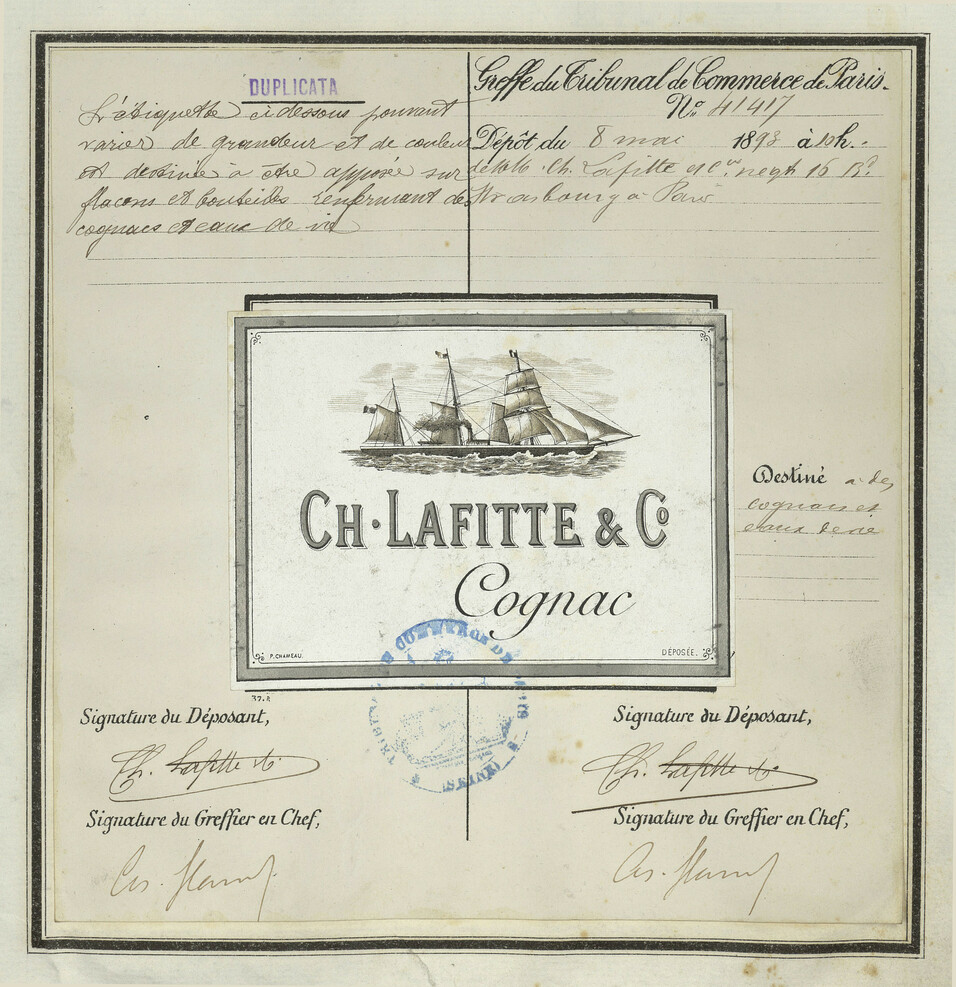 DUPLICATA
L'étiquette ci dessous pouvant
varier de grandeur et de couleur
est destiné à être apposée sur
flacons et bouteilles renfermant des
cognacs et eaux de vie
Greffe du Tribunal de Commerce de Paris.
No. 41417
Dépôt du 8 mai 1893 à 10h.
de MM. Ch. Lafitte et Cie. negts 16 Bd
Strasbourg à Paris
CH. LAFITTE & Co
Cognac
P. CHAMEAU.
DÉPOSÉE.
Destiné à des
cognacs et
eaux de vie
37.R
TRIBUNAL DE COMMERCE DE PARIS
(SEINE)
Signature du Déposant,
Ch. Lafitte &c.
Signature du Greffier en Chef,
Signature du Déposant,
Ch. Lafitte &c.
Signature du Greffier en Chef,